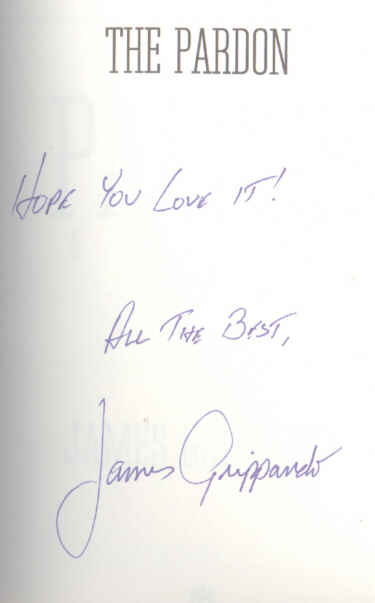 THE PARDON
HOPE YOU LOVE IT!
ALL THE BEST,
James Grippando